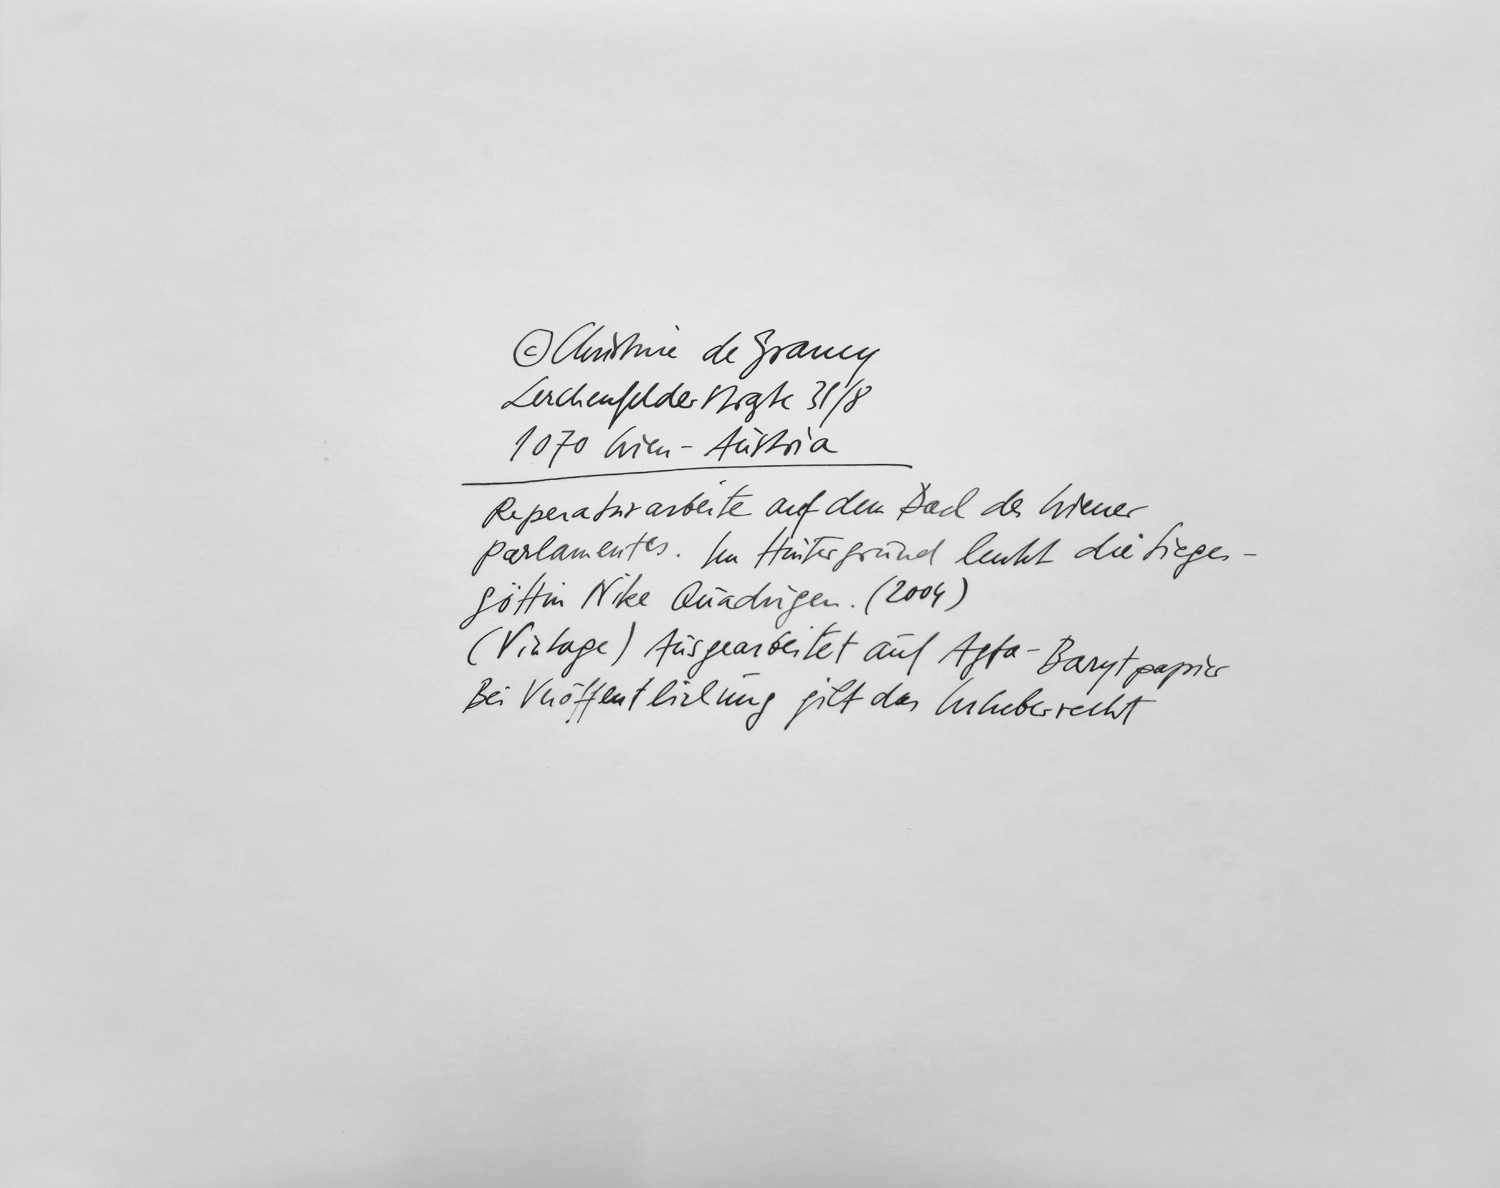 © Christine de Grancy
Lerchenfelderstraße 31/8
1070 Wien - Austria
Reperaturarbeite auf dem Dach des Wiener
Parlamentes. Im Hintergrund lenkt die Sieges-
göttin Nike Quadrigen. (2004)
(Vintage) Ausgearbeitet auf Agfa-Barytpapier
Bei Veröffentlichung gilt das Urheberrecht